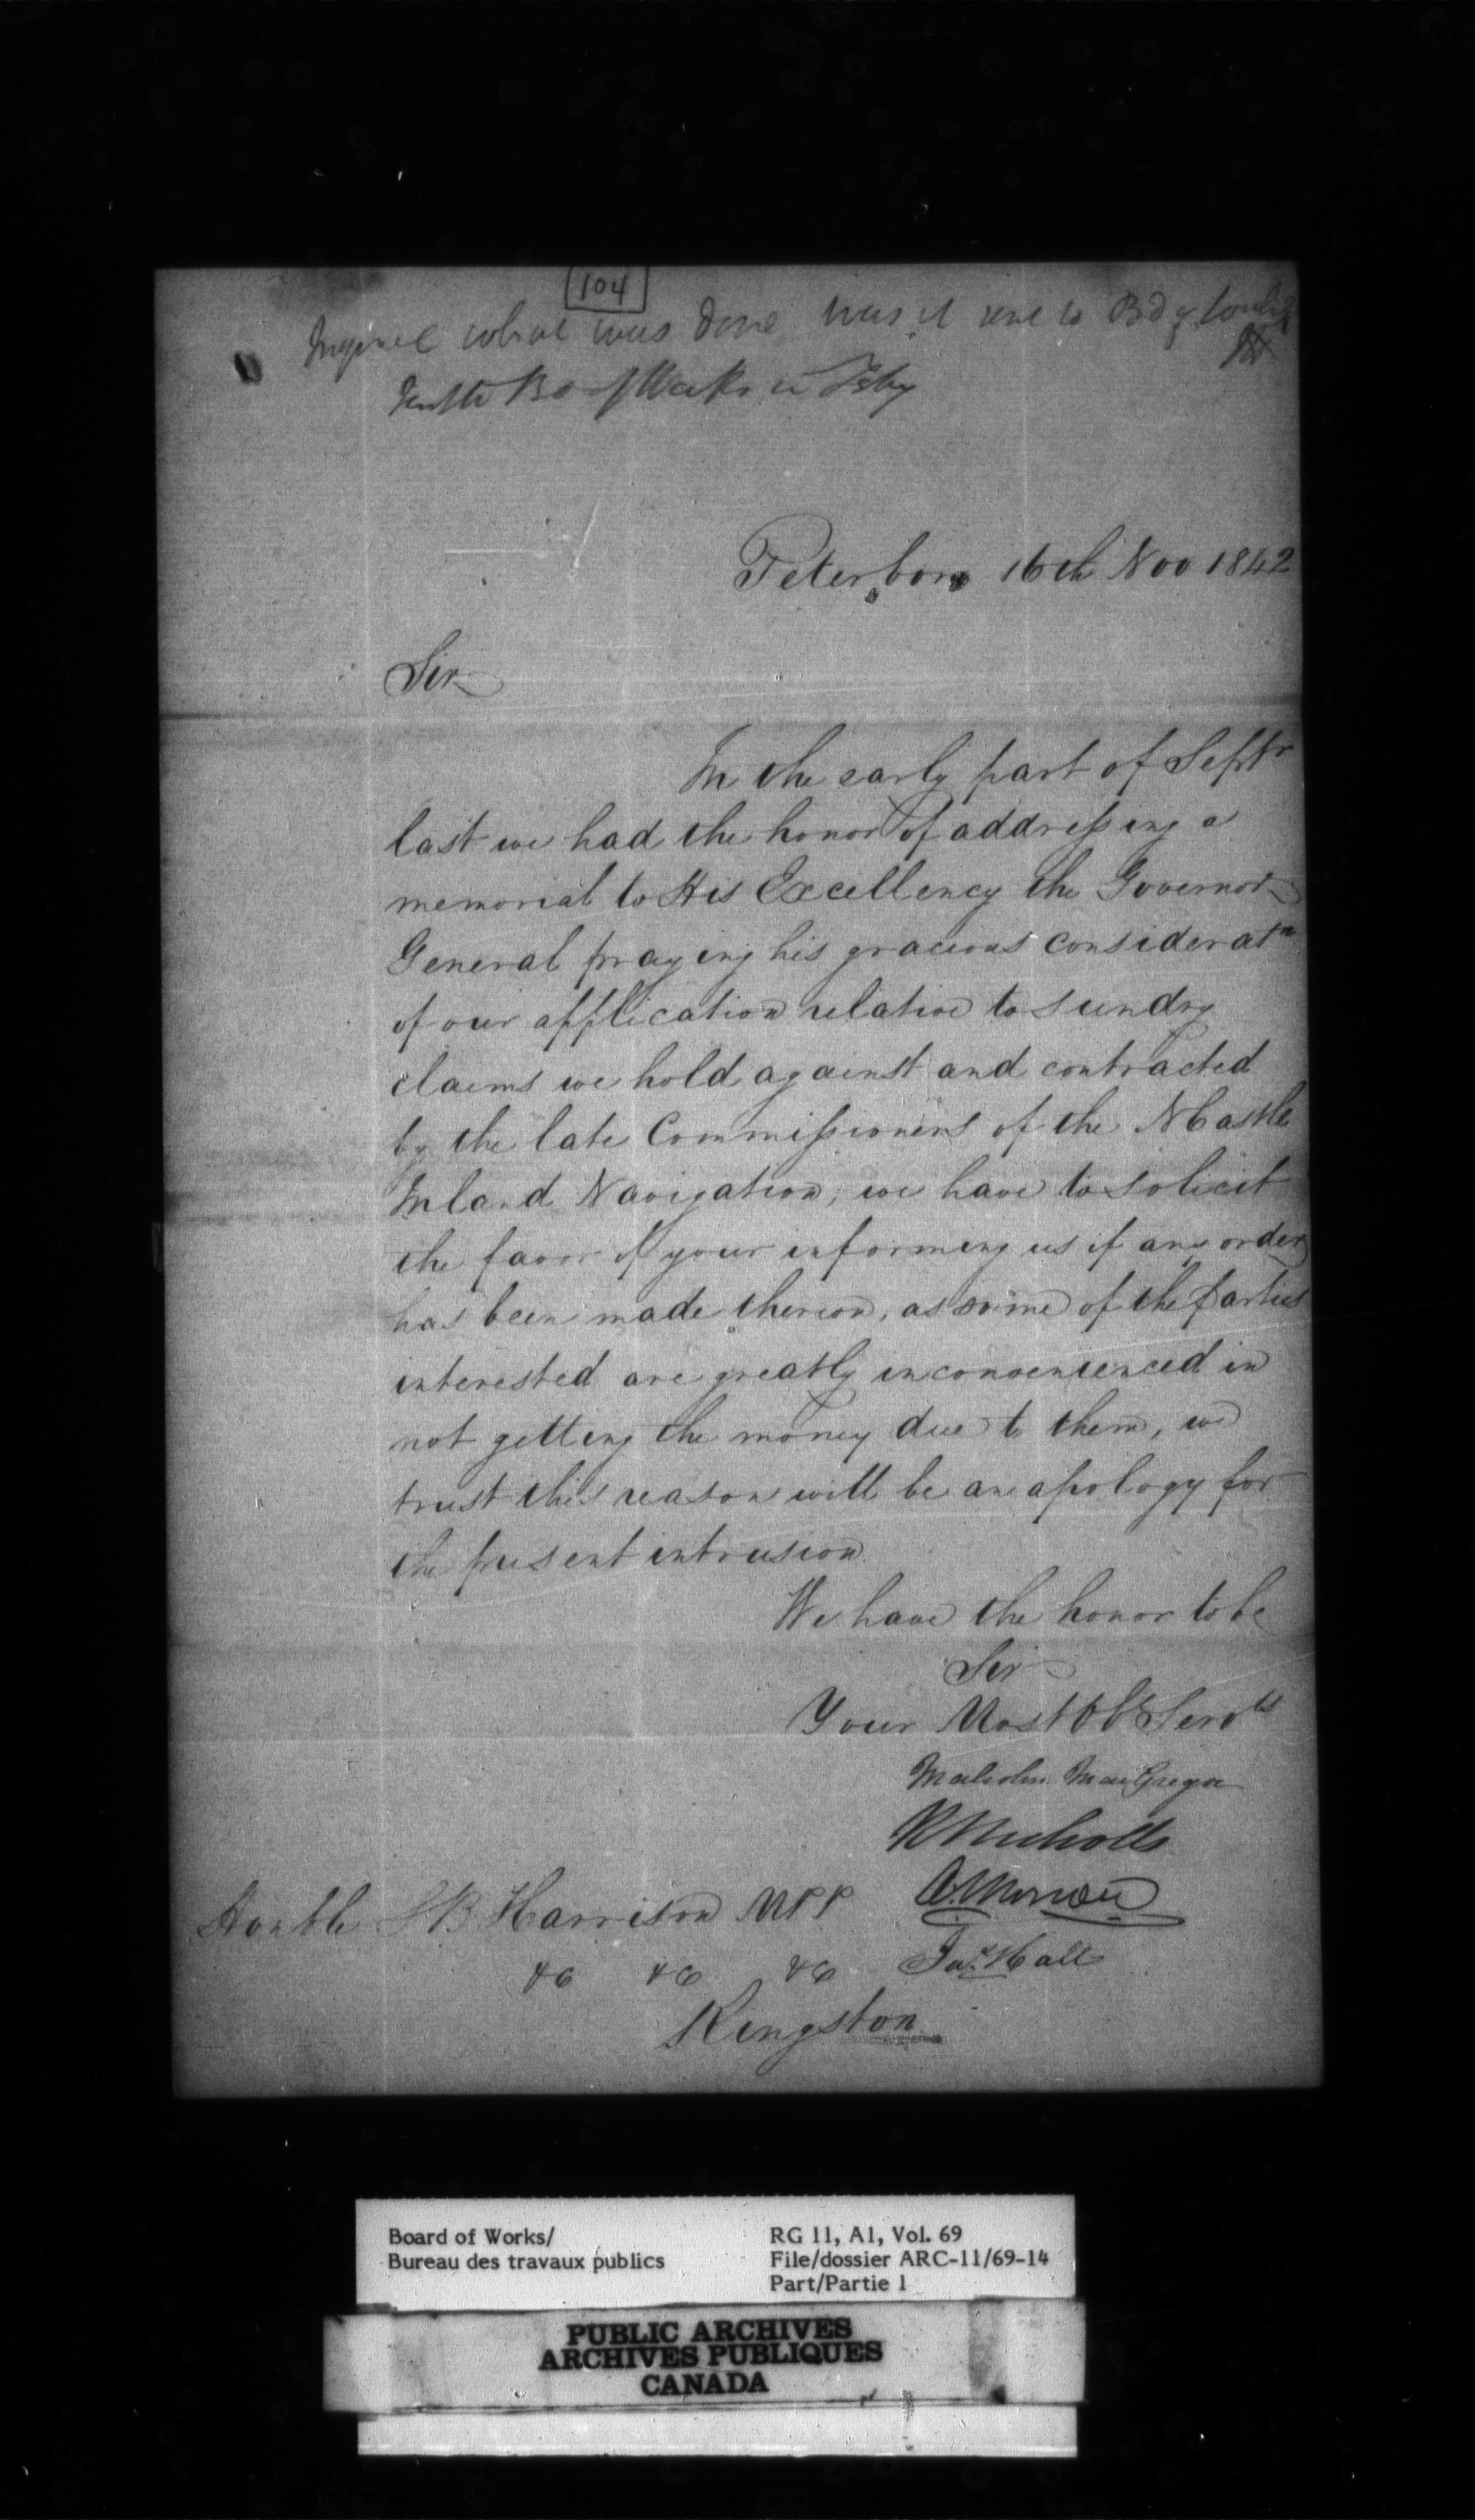 104
what was done was it sent to Bd of Works
Bd of Works
Peterboro 16th Nov 1842
Sir
In the early part of Septr
last we had the honor of addressing a
memorial to His Excellency the Governor
General praying his gracious consideratn
of our application relative to sundry
claims we hold against and contracted
by the late Commissioners of the NCastle
Inland Navigation, we have to solicit
the favor of your informing us if any order
has been made thereon, as some of the parties
interested are greatly inconvenienced in
not getting the money due to them, we
trust this reason will be an apology for
the present intrusion
We have the honor to be
Sir
Your Most Obt Servts
Malcolm MacGregor
R Nicholls
A. Morrow
Jas. Hall
Honble S B Harrison MPP
&c &c &c
Kingston
Board of Works/
Bureau des travaux publics
RG 11, A1, Vol. 69
File/dossier ARC-11/69-14
Part/Partie 1
PUBLIC ARCHIVES
ARCHIVES PUBLIQUES
CANADA